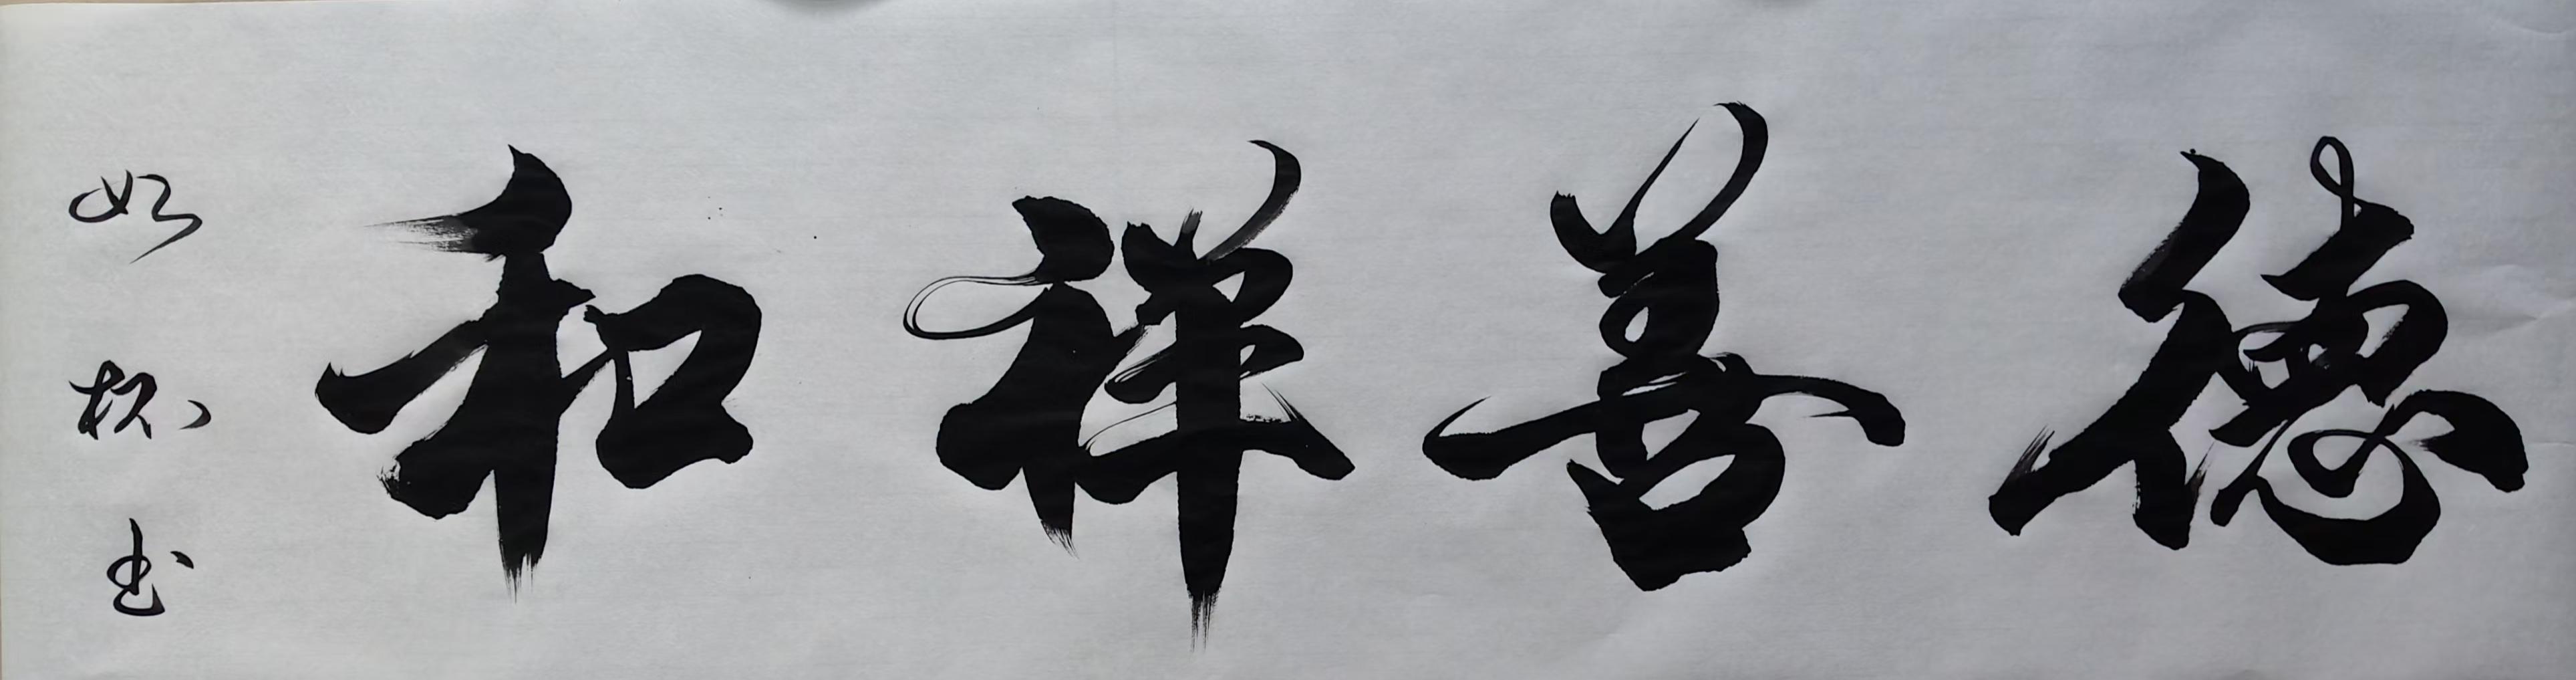 德善祥和
如松书